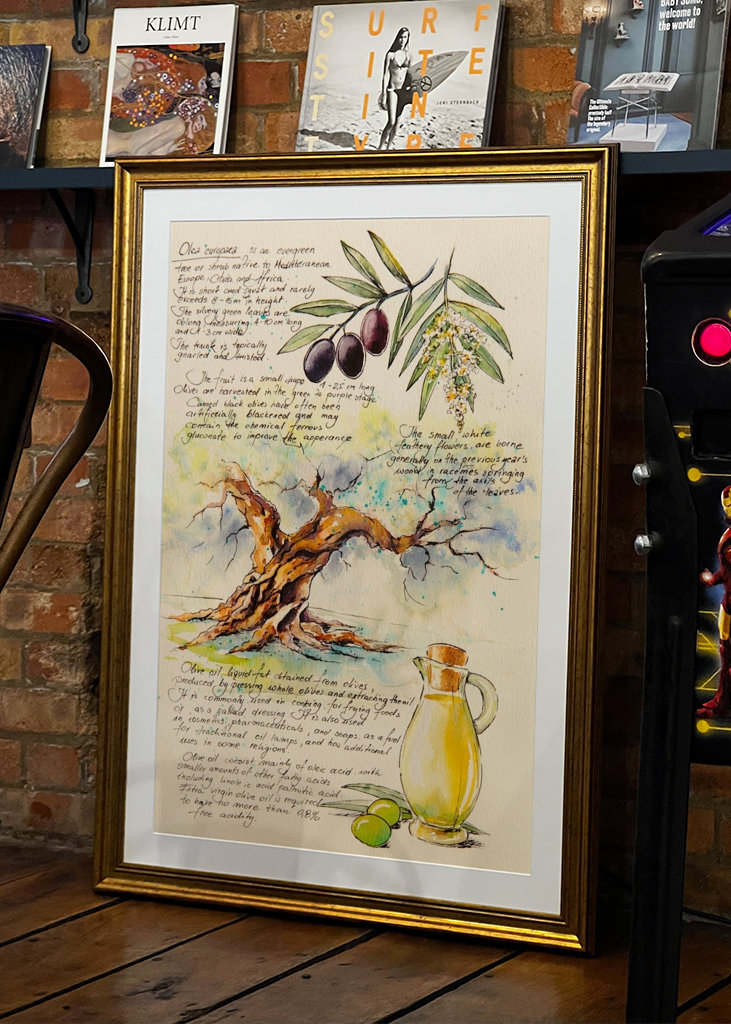 KLIMT
SURF
SITE
IN
TYPE
JONI STERNBACH
welcome to
the world!
The Ultimate
Collectible:
precisely half
the size of
the legendary
original.
Olea europaea is an evergreen
tree or shrub native to Mediteranean
Europe, and Africa.
It is short and squat and rarely
exceeds 8-15m in height.
The silvery green leaves are
oblong measuring 4-10 cm long
and 1-3 cm wide.
The trunk is typically
gnarled and twisted.
The fruit is a small drupe 1-2,5 cm long
Olives are harvested in the green to purple stage.
Canned black olives have often been
artificially blackened and may
contain the chemical ferrous
gluconate to improve the apperance
The small white
feathery flowers are borne
generally on the previous year's
wood, in racemes springing
from the axils
of the leaves.
Olive oil liquid fat obtained from olives,
produced by pressing whole olives and extracting the oil.
It is commonly used in cooking, for frying foods
or as a salad dressing. It is also used
in cosmetics, pharmaceuticals, and soaps, as a fuel
for traditional oil lamps, and has additional
uses in some religions
Olive oil consist mainly of oleic acid with
smaller amounts of other fatty acids
including linoleic acid palmitic acid.
Extra virgin olive oil is required
to have no more than 0,8%
free acidity.